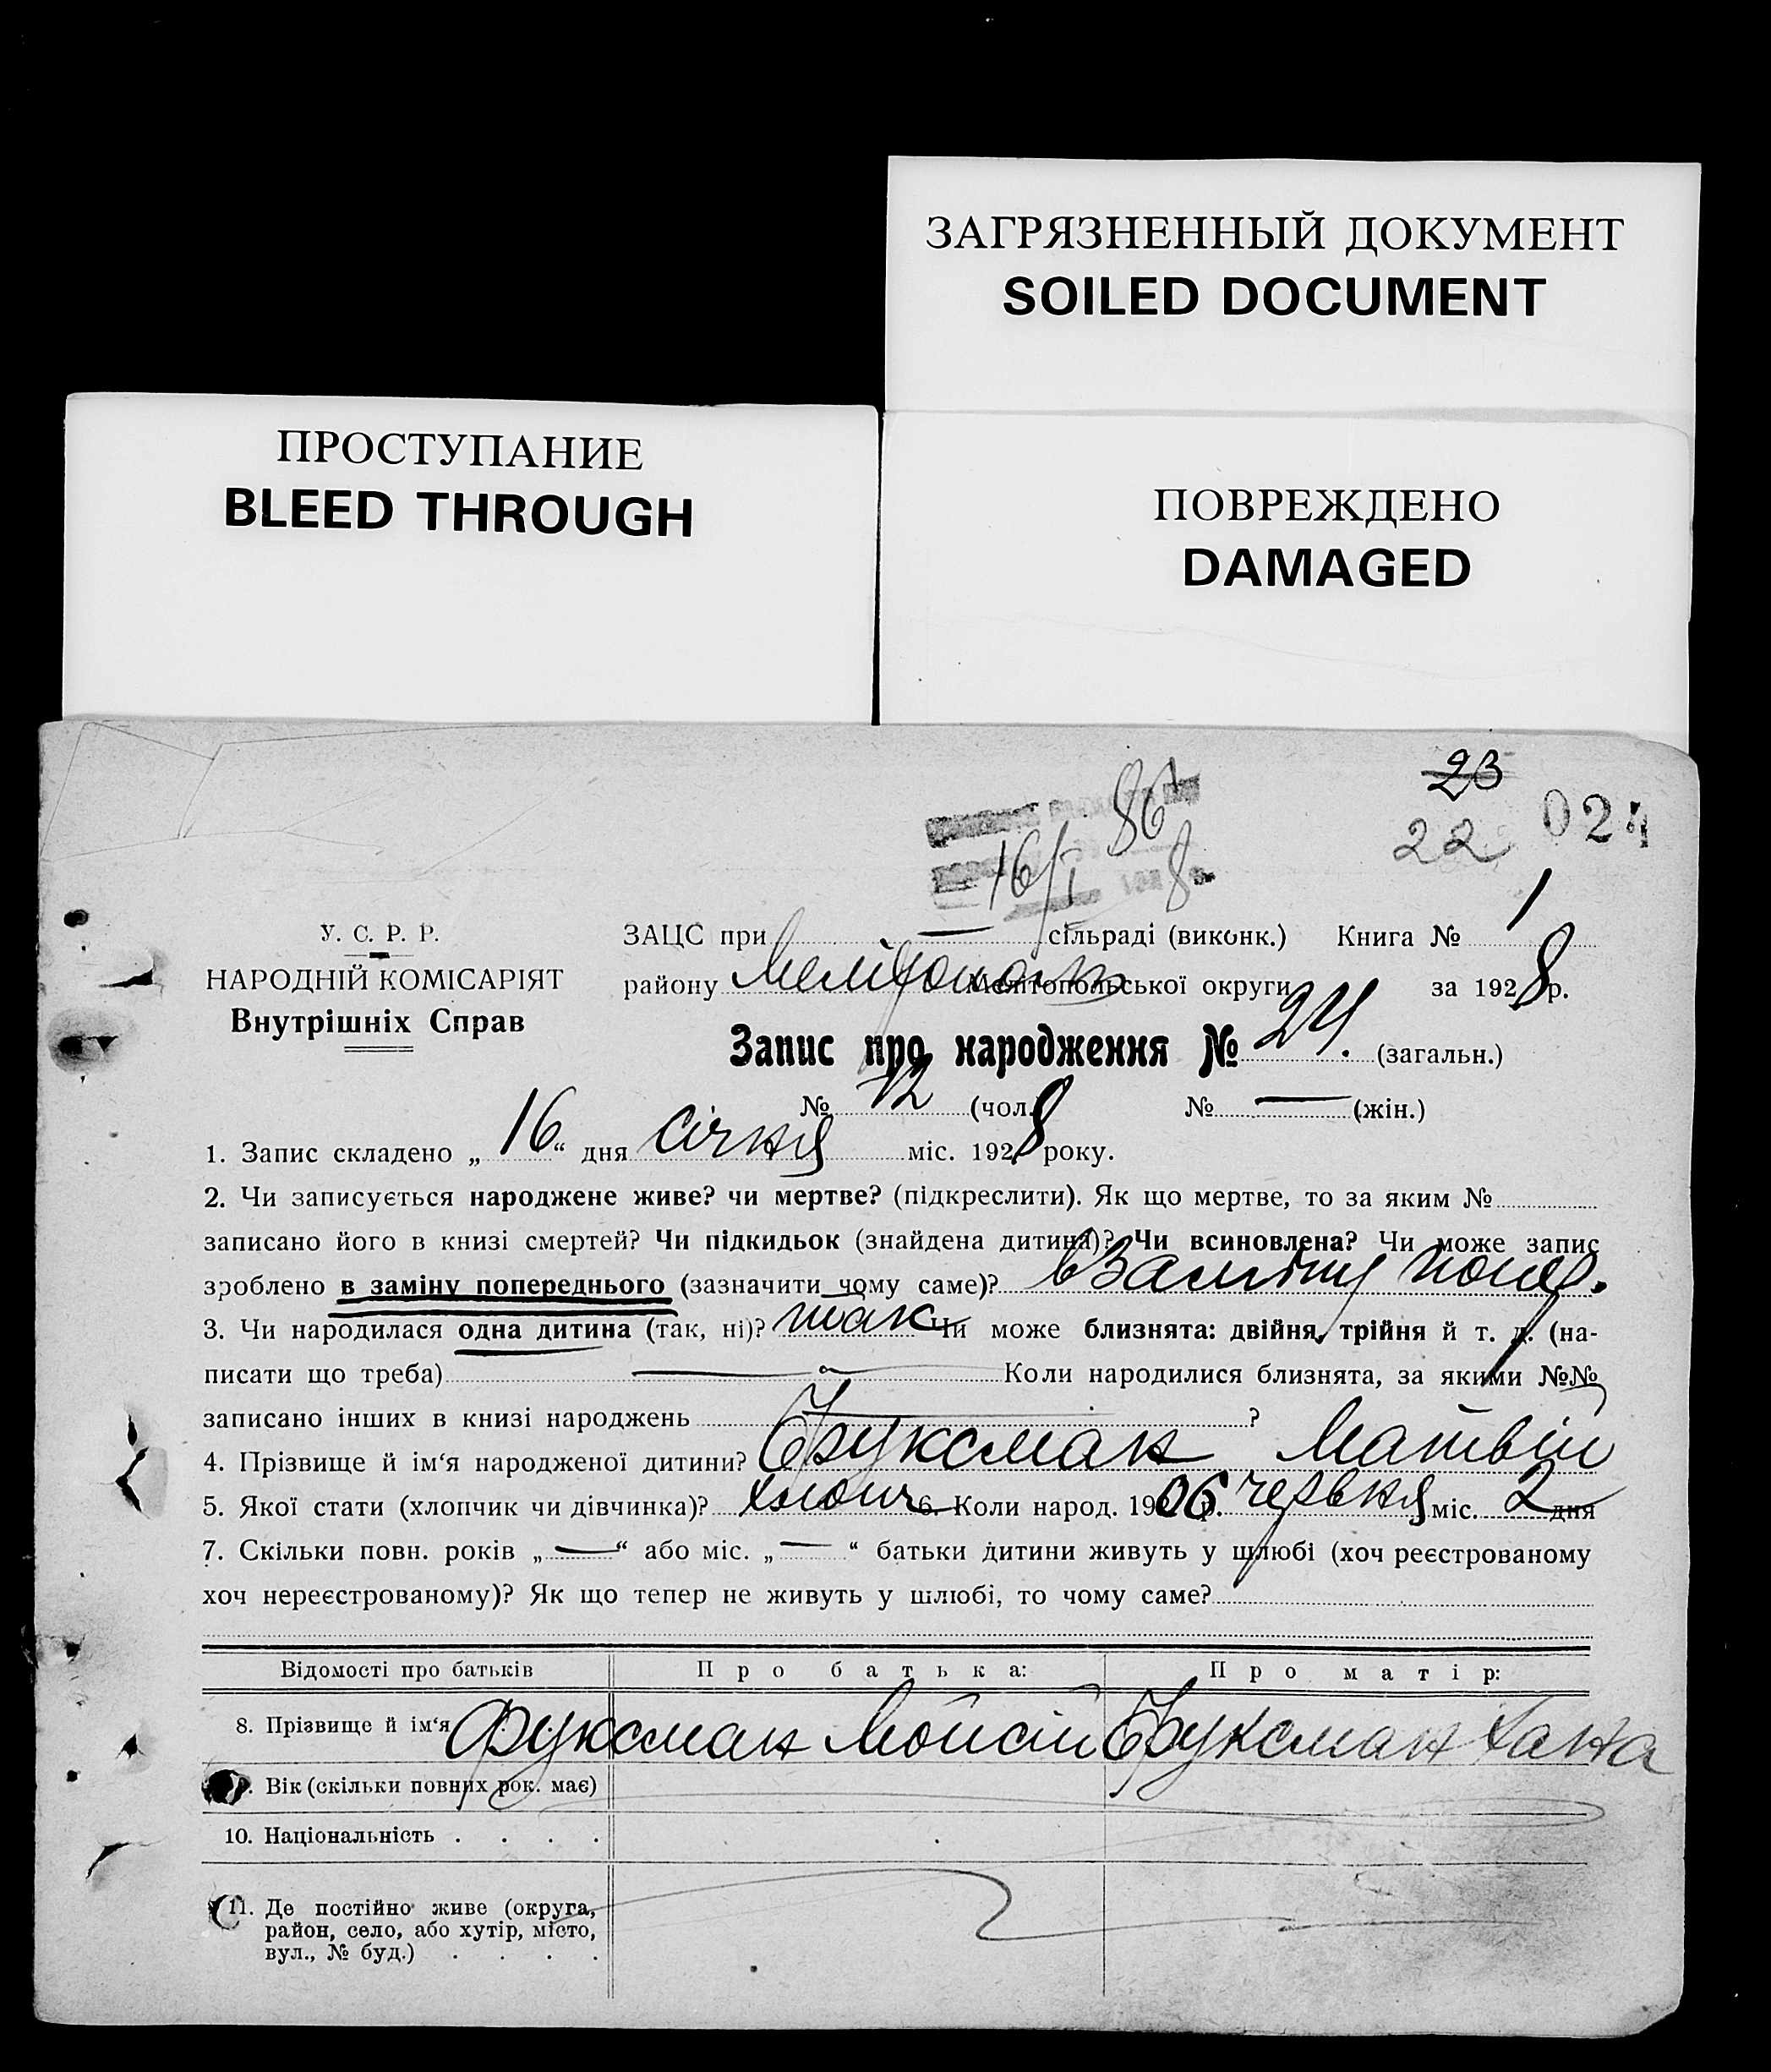 ЗАГРЯЗНЕННЫЙ ДОКУМЕНТ
SOILED DOCUMENT
ПРОСТУПАНИЕ
BLEED THROUGH
ПОВРЕЖДЕНО
DAMAGED
23
22 024
86
16/I 8
У. С. Р. Р.
НАРОДНІЙ КОМІСАРІЯТ
Внутрішніх Справ
ЗАЦС при — сільраді (виконк.) Книга № 1
району Мелітополь Мелітопольської округи за 1928 р.
Запис про народження № 24. (загальн.)
№ 12 (чол.) № — (жін.)
1. Запис складено „16“ дня січня міс. 1928 року.
2. Чи записується народжене живе? чи мертве? (підкреслити). Як що мертве, то за яким №
записано його в книзі смертей? Чи підкидьок (знайдена дитина)? Чи всиновлена? Чи може запис
зроблено в заміну попереднього (зазначити чому саме)? взаміну попер.
3. Чи народилася одна дитина (так, ні)? так Чи може близнята: двійня, трійня й т. д. (на-
писати що треба) — Коли народилися близнята, за якими №№
записано інших в книзі народжень — ?
4. Прізвище й ім‘я народженої дитини? Фуксман Матвій
5. Якої стати (хлопчик чи дівчинка)? хлопч 6. Коли народ. 1906 р. червня міс. 2 дня
7. Скільки повн. років „—“ або міс. „—“ батьки дитини живуть у шлюбі (хоч реєстрованому
хоч нереєстрованому)? Як що тепер не живуть у шлюбі, то чому саме?
Відомості про батьків Про батька: Про матір:
8. Прізвище й ім‘я Фуксман Мойсій Фуксман Хана
9. Вік (скільки повних рок. має)
10. Національність . . . .
11. Де постійно живе (округа,
район, село, або хутір, місто,
вул., № буд.) . . . .